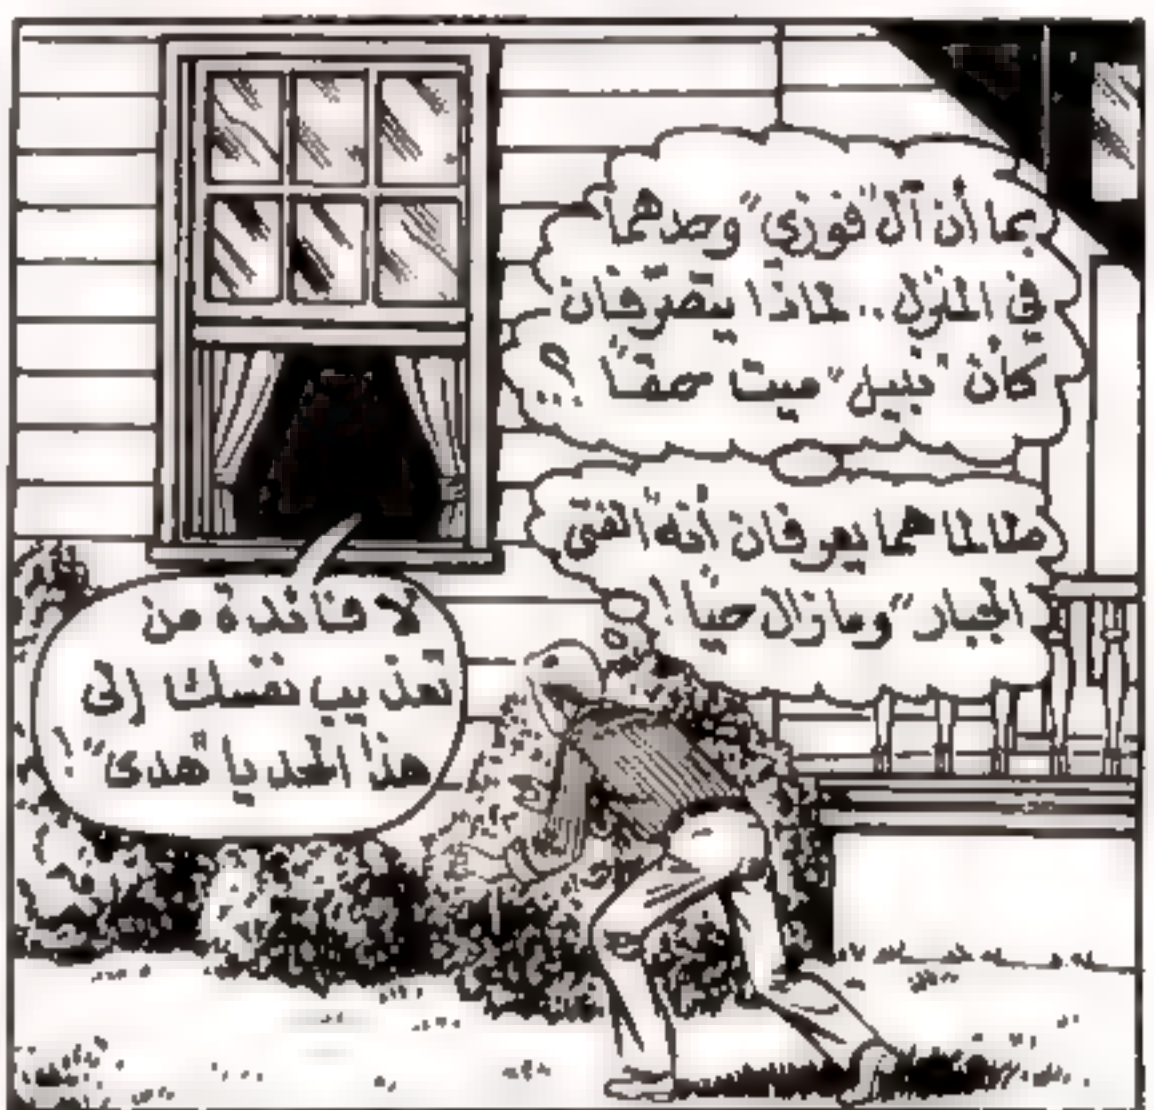 بما أن آل "فوزي" وحدهما
في المنزل.. لماذا يتصرّفان
كأن "نبيل" ميت حقاً ...؟
طالما هما يعرفان أنه "الفتى
الجبار" وما زال حيّا!
لا فائدة من
تعذيب نفسك إلى
هذا الحد يا "هدى"!